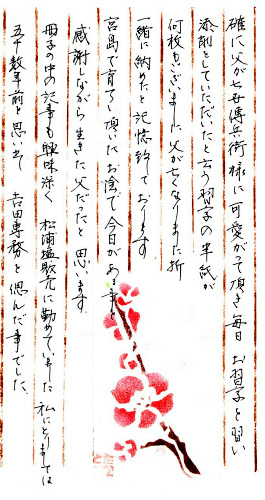 確に父が七世傳兵衛様に可愛がって頂き毎日 お習字を習い
添削をしていただいたと言う習字の半紙が
何枚もございました 父が亡くなりました折
一緒に納めたと記憶致しております
宮島で育てて頂いたお陰で今日がある事を
感謝しながら生きた父だったと思います
冊子の中の記事も興味深く 松浦塩販売に勤めていました 私にとりましては
五十数年前を思い出し 吉田専務を偲んだ事でした。